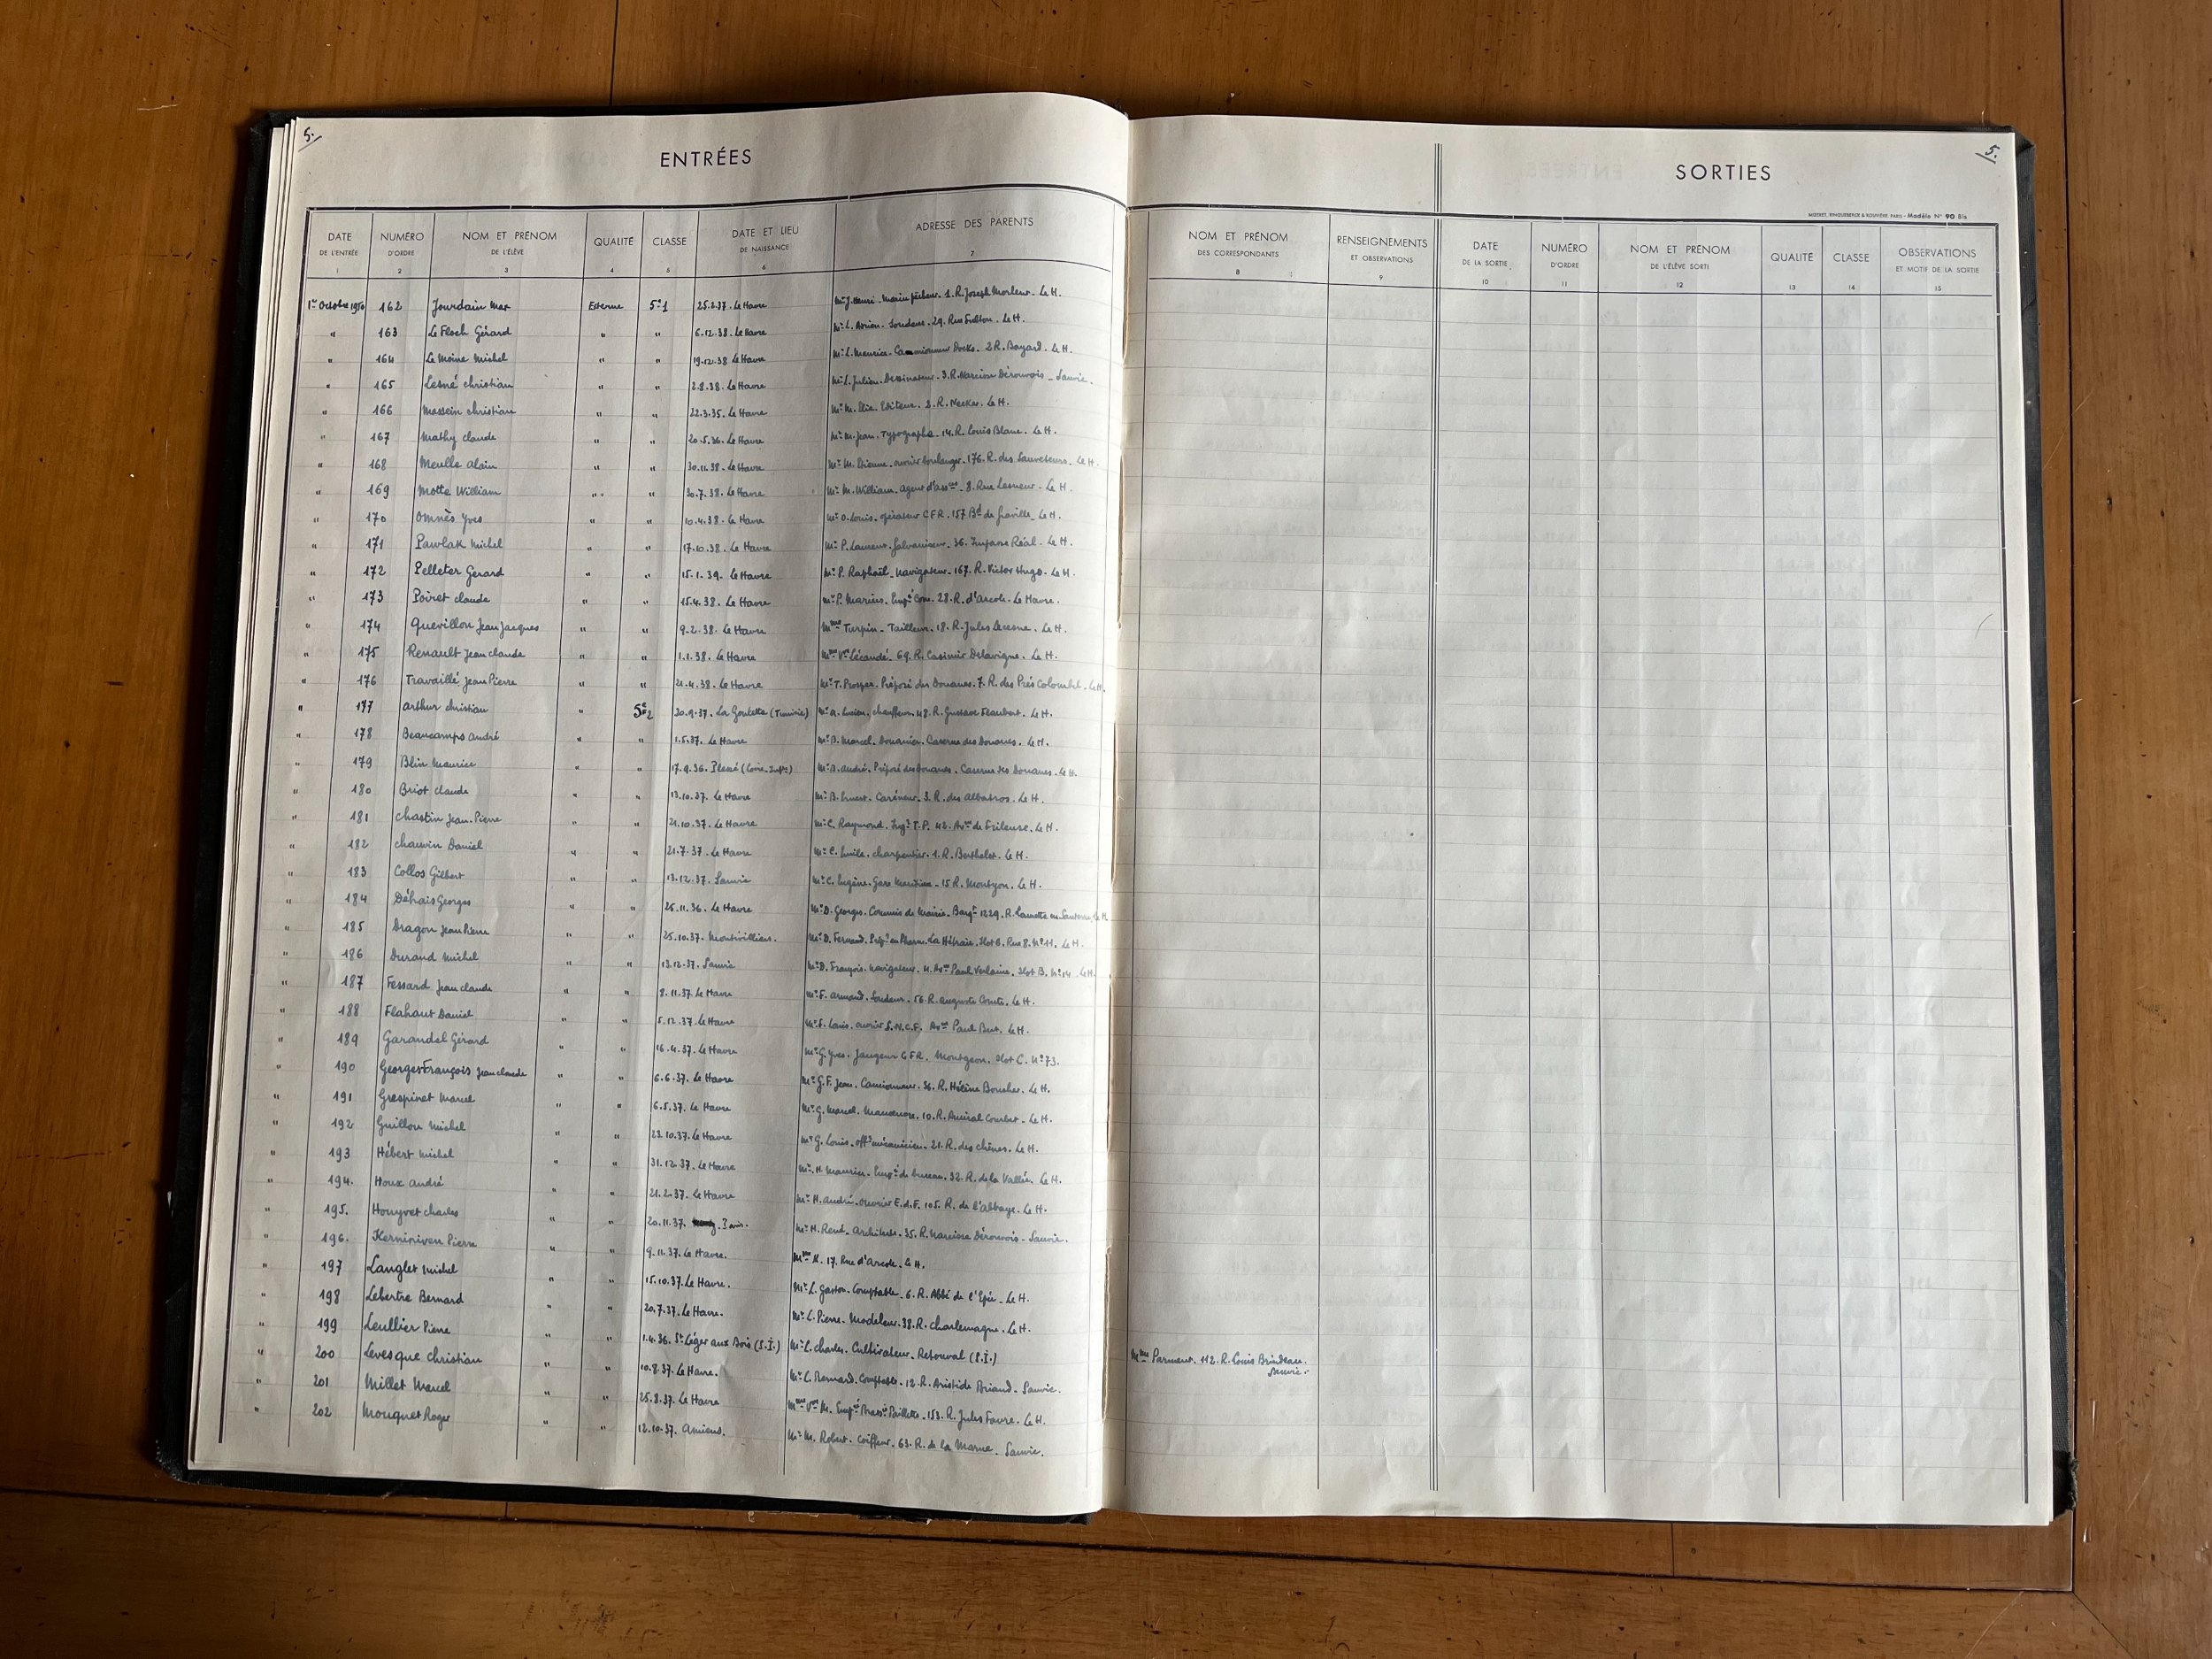 5.
ENTRÉES
DATE DE L'ENTRÉE 1 NUMÉRO D'ORDRE 2 NOM ET PRÉNOM DE L'ÉLÈVE 3 QUALITÉ 4 CLASSE 5 DATE ET LIEU DE NAISSANCE 6 ADRESSE DES PARENTS 7
1er Octobre 1950 162 Jourdain Max Externe 5e1 25.2.37. Le Havre Mr J. Henri. Marin pêcheur. 1. R. Joseph Morlent. Le H.
" 163 Le Floch Gérard " " 6.12.38. Le Havre Mr L. Soudeur. 29. Rue Fulton. Le H.
" 164 Le Moine Michel " " 19.12.38 Le Havre Mr L. Maurice. Camionneur Docks. 2 R. Bayard. Le H.
" 165 Lesné christian " " 2.8.38. Le Havre Mr L. Julien. Dessinateur. 3. R. Narcisse Dérouvois _ Sanvic.
" 166 Massein christian " " 22.3.35. Le Havre Mr M. Elie. Editeur. 2. R. Necker. Le H.
" 167 Mathy claude " " 20.5.36. Le Havre Mr M. Jean. Typographe. 14. R. Louis Blanc. Le H.
" 168 Meulle Alain " " 30.11.38. Le Havre Mr M. Etienne. ouvrier boulanger. 176. R. des Sauveteurs. Le H.
" 169 Motte William " " 30.7.38. Le Havre Mr M. William. agent d'assces _ 8. Rue Lesueur. Le H.
" 170 Omnès Yves " " 10.4.38. Le Havre Mr O. Louis. opérateur C F R. 157 Bd de Graville. Le H.
" 171 Pawlak Michel " " 17.10.38. Le Havre Mr P. Laurent. Galvaniseur. 36. Impasse Réal. Le H.
" 172 Pelleter Gerard " " 15.1.39. Le Havre Mr P. Raphaël. Navigateur. 167. R. Victor Hugo. Le H.
" 173 Poiret claude " " 15.4.38. Le Havre Mr P. Marius. Empé Com. 28. R. d'Arcole. Le Havre.
" 174 Quevillon Jean Jacques " " 9.2.38. Le Havre Mme Turpin. Tailleur. 18. R. Jules Lecesne. Le H.
" 175 Renault Jean claude " " 1.1.38. Le Havre Mme Vve Lécaudé. 69. R. Casimir Delavigne. Le H.
" 176 Travaillé Jean Pierre " " 21.4.38. Le Havre Mr T. Prosper. Préposé des Douanes. 7. R. des Prés Colombel. Le H.
" 177 Arthur christian " 5e2 20.9.37. La Goulette (Tunisie) Mr A. Lucien. chauffeur. 48. R. Gustave Flaubert. Le H.
" 178 Beaucamps André " " 1.5.37. Le Havre Mr B. Marcel. Douanier. Caserne des Douanes. Le H.
" 179 Blin Maurice " " 17.9.36. Plessé (Loire-Infre) Mr B. André. Préposé des Douanes. Caserne des Douanes. Le H.
" 180 Briot claude " " 13.10.37. Le Havre Mr B. Ernest. Caréneur. 3. R. des Albatros. Le H.
" 181 chastin Jean-Pierre " " 21.10.37. Le Havre Mr C. Raymond. Ingr T.P. 42. Ave de Frileuse. Le H.
" 182 chauvin Daniel " " 21.7.37. Le Havre Mr C. Emile. charpentier. 1. R. Berthelot. Le H.
" 183 Collos Gilbert " " 13.12.37. Sanvic Mr C. Eugène. Gare Maritime _ 15 R. Montyon. Le H.
" 184 Déhais Georges " " 26.11.36. Le Havre Mr D. Georges. Commis de Mairie. 1229. R. Le H.
" 185 Dragon Jean Pierre " " 25.10.37. Montivilliers. Mr D. Fernand. Prépr en Pharm. La Hêtraie. Ilot 6. Rue 8. No 11. Le H.
" 186 Durand Michel " " 13.12.37. Sanvic Mr D. François. Navigateur. Ave Paul Verlaine. Ilot B. No 14. Le H.
" 187 Fessard Jean claude " " 8.11.37. Le Havre Mr F. Armand. Soudeur. 56. R. Auguste Comte. Le H.
" 188 Flahaut Daniel " " 5.12.37. Le Havre Mr F. Louis. ouvrier S.N.C.F. Ave Paul Bert. Le H.
" 189 Garandel Gérard " " 16.4.37. Le Havre Mr G. Yves. Jaugeur C F R. Montgeon. Ilot C. No 73.
" 190 Georges François Jean claude " " 6.6.37. Le Havre Mr G. F. Jean. Camionneur. 36. R. Hélène Boucher. Le H.
" 191 Grespinet Marcel " " 6.5.37. Le Havre Mr G. Marcel. Manœuvre. 10. R. Amiral Courbet. Le H.
" 192 Guillou Michel " " 23.10.37. Le Havre Mr G. Louis. offr mécanicien. 21. R. des chênes. Le H.
" 193 Hébert Michel " " 31.12.37. Le Havre Mr H. Maurice. Empé de bureau. 32. R. de la Vallée. Le H.
" 194. Houx André " " 21.2.37. Le Havre Mr H. André. ouvrier E.d.F. 105. R. de l'Abbaye. Le H.
" 195. Houyvet charles " " 20.11.37. Paris. Mr H. René. Architecte. 35. R. Narcisse Dérouvois. Sanvic.
" 196. Kerniniven Pierre " " 9.11.37. Le Havre. Mme K. 17. Rue d'Arcole. Le H.
" 197 Langlet Michel " " 15.10.37. Le Havre. Mr L. Gaston. Comptable. 6. R. Abbé de l'Epée. Le H.
" 198 Lebertre Bernard " " 20.7.37. Le Havre. Mr L. Pierre. Modeleur. 38. R. charlemagne. Le H.
" 199 Leullier Pierre " " 1.4.36. St Léger aux Bois (S.I.) Mr L. charles. Cultivateur. Retonval (S.I.)
Mme Parment. 112. R. Louis Brindeau.
Sanvic.
" 200 Levesque christian " " 10.8.37. Le Havre. Mr L. Bernard. Comptable. 12. R. Aristide Briand. Sanvic.
" 201 Millet Marcel " " 25.8.37. Le Havre Mme Vve M. Empée Brassie Paillette. 153. R. Jules Favre. Le H.
" 202 Mouquet Roger " " 12.10.37. Amiens. Mr M. Robert. Coiffeur. 63. R. de la Marne. Sanvic.
5.
SORTIES
Modèle No 90 Bis
NOM ET PRÉNOM DES CORRESPONDANTS 8 RENSEIGNEMENTS ET OBSERVATIONS 9 DATE DE LA SORTIE 10 NUMÉRO D'ORDRE 11 NOM ET PRÉNOM DE L'ÉLÈVE SORTI 12 QUALITÉ 13 CLASSE 14 OBSERVATIONS ET MOTIF DE LA SORTIE 15